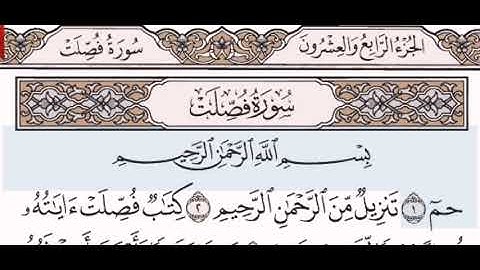 الجُزْءُ الرَّابِعُ وَالعِشْرُونَ سُورَةُ فُصِّلَتْ
سُورَةُ فُصِّلَتْ
بِسْمِ اللَّهِ الرَّحْمَٰنِ الرَّحِيمِ
حمٓ ١ تَنزِيلٌ مِّنَ الرَّحْمَٰنِ الرَّحِيمِ ٢ كِتَابٌ فُصِّلَتْ ءَايَاتُهُۥ